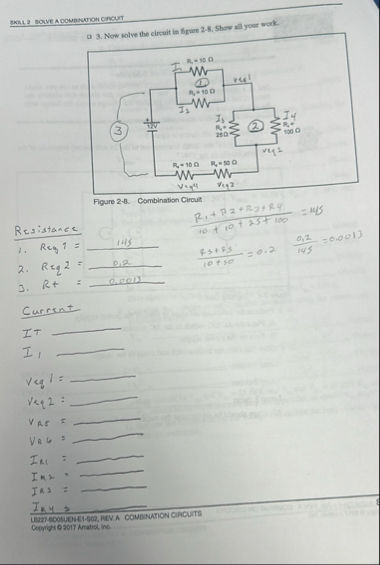 SKILL 2 SOLVE A COMBINATION CIRCUIT
3. Now solve the circuit in figure 2-8. Show all your work.
R₁ = 10 Ω
I₁
①
Veq1
R₂ = 10 Ω
I₂
③
12V
I₃
R₃ =
25Ω
②
I₄
R₄ =
100 Ω
Veq2
R₆ = 10 Ω R₅ = 50 Ω
Figure 2-8. Combination Circuit
Resistance
R₁ + R₂ + R₃ + R₄ = 145
10 + 10 + 25 + 100
1. Req 1 = 145
2. Req 2 = 0.2
10 + 50 = 0.2
0.2 = 0.0013
145
3. Rt = 0.0013
Current
IT
I₁
Veq 1 =
Veq 2 =
VR5 =
VR6 =
IR1 =
IR2 =
IR3 =
IR4 =
LB227-BD05UEN-E1-S02, REV. A COMBINATION CIRCUITS
Copyright © 2017 Amatrol, Inc.